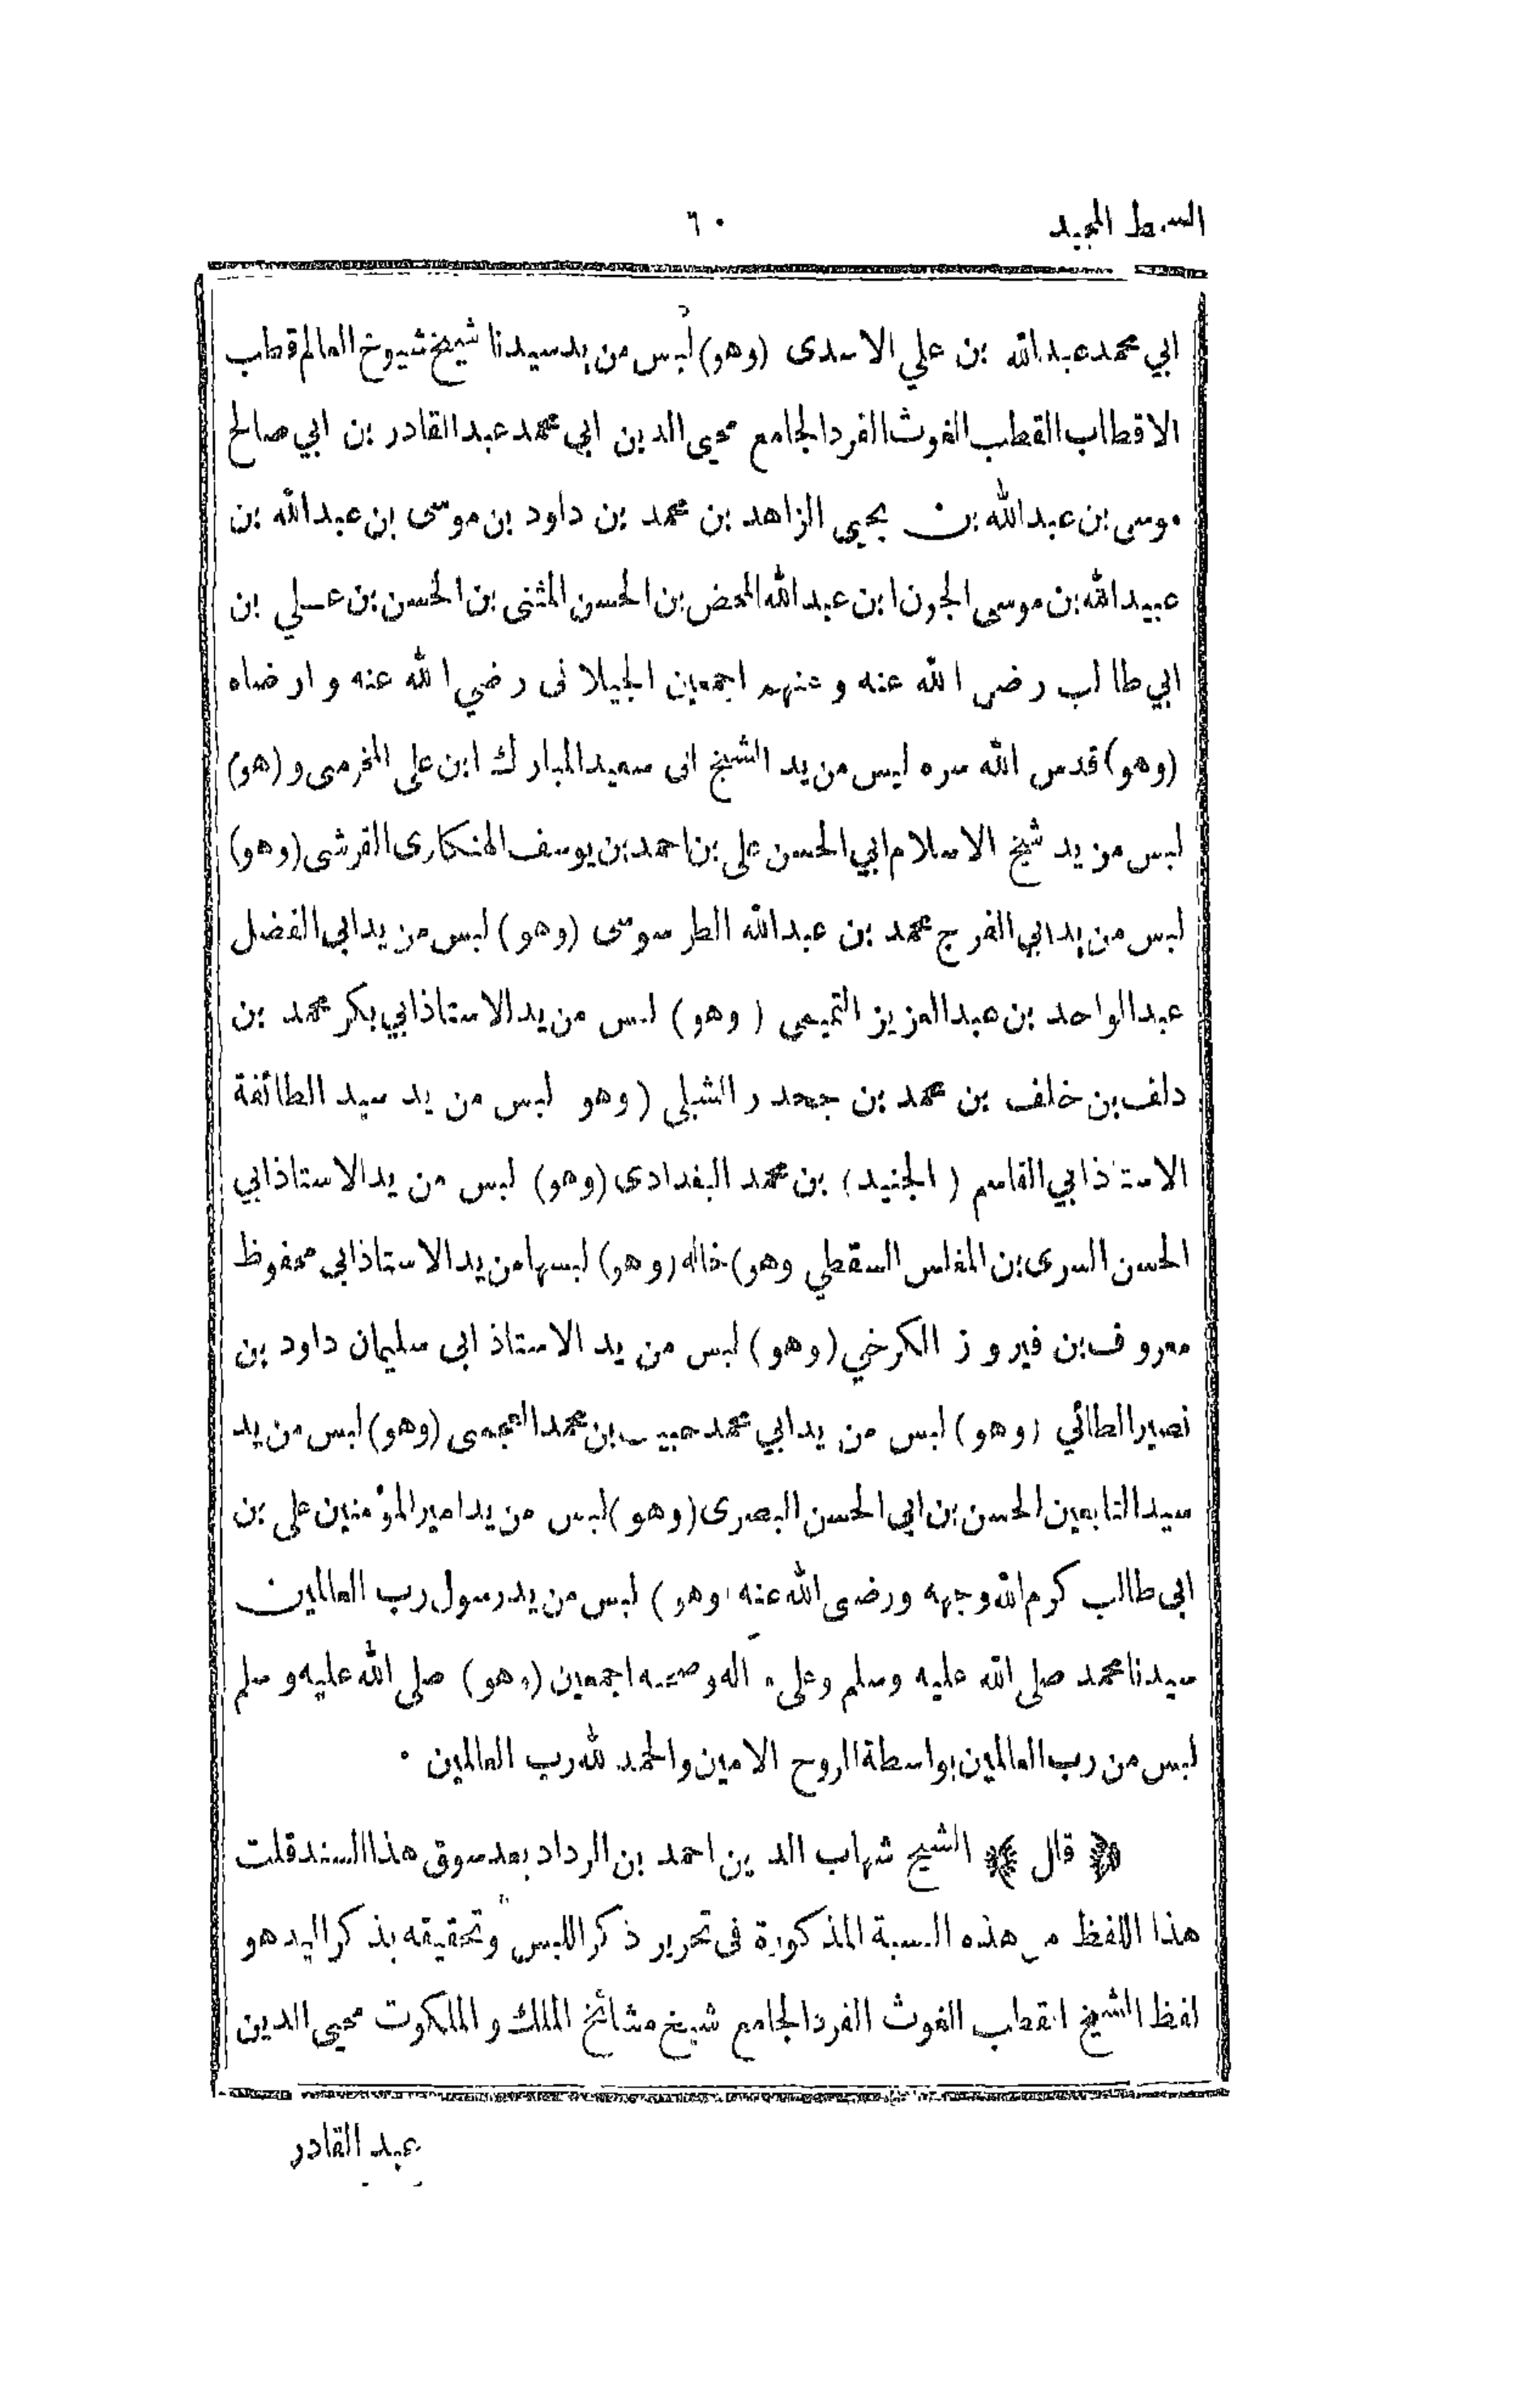 السمط المجيد
٦٠
ابي محمد عبدالله بن علي الاسدى (وهو) لبس من يد سيدنا شيخ شيوخ العالم قطب
الاقطاب القطب الغوث الفرد الجامع محيى الدين ابي محمد عبد القادر بن ابي صالح
موسى بن عبدالله بن يحيى الزاهد بن محمد بن داود بن موسى بن عبدالله بن
عبيدالله بن موسى الجون ابن عبدالله المحض بن الحسن المثنى بن الحسن بن عـلي بن
ابي طالب رضى الله عنه وعنهم اجمعين الجيلانى رضي الله عنه وارضاه
(وهو) قدس الله سره لبس من يد الشيخ ابى سعيد المبارك ابن على المخرمى و (هو)
لبس من يد شيخ الاسلام ابي الحسن على بن احمد بن يوسف الهنكارى القرشى (وهو)
لبس من يد ابي الفرج محمد بن عبدالله الطرسوسى (وهو) لبس من يد ابي الفضل
عبدالواحد بن عبدالعزيز التميمى (وهو) لبس من يد الاستاذ ابي بكر محمد بن
دلف بن خلف بن محمد بن جحدر الشبلى (وهو لبس من يد سيد الطائفة
الاستاذ ابي القاسم (الجنيد) بن محمد البغدادى (وهو) لبس من يد الاستاذ ابي
الحسن السرى بن المغلس السقطي وهو) خاله (وهو) لبسها من يد الاستاذ ابي محفوظ
معروف بن فيروز الكرخي (وهو) لبس من يد الاستاذ ابى سليمان داود بن
نصير الطائي (وهو) لبس من يد ابي محمد حبيب بن محمد العجمى (وهو) لبس من يد
سيد التابعين الحسن بن ابى الحسن البصرى (وهو) لبس من يد امير المؤمنين على بن
ابى طالب كرم الله وجهه ورضى الله عنه (وهو) لبس من يد رسول رب العالمين
سيدنا محمد صلى الله عليه وسلم وعلى آله وصحبه اجمعين (وهو) صلى الله عليه وسلم
لبس من رب العالمين بواسطة الروح الامين والحمد لله رب العالمين ٠
﴿ قال ﴾ الشيخ شهاب الدين احمد بن الرداد بعد سوق هذا السند قلت
هذا اللفظ من هذه النسبة المذكورة فى تحرير ذكر اللبس وتحقيقه بذكر اليد هو
لفظ الشيخ القطب الغوث الفرد الجامع شيخ مشائخ الملك و الملكوت محيى الدين
عبد القادر